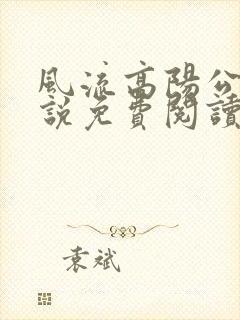 風流高陽公
說免費閱讀
袁斌